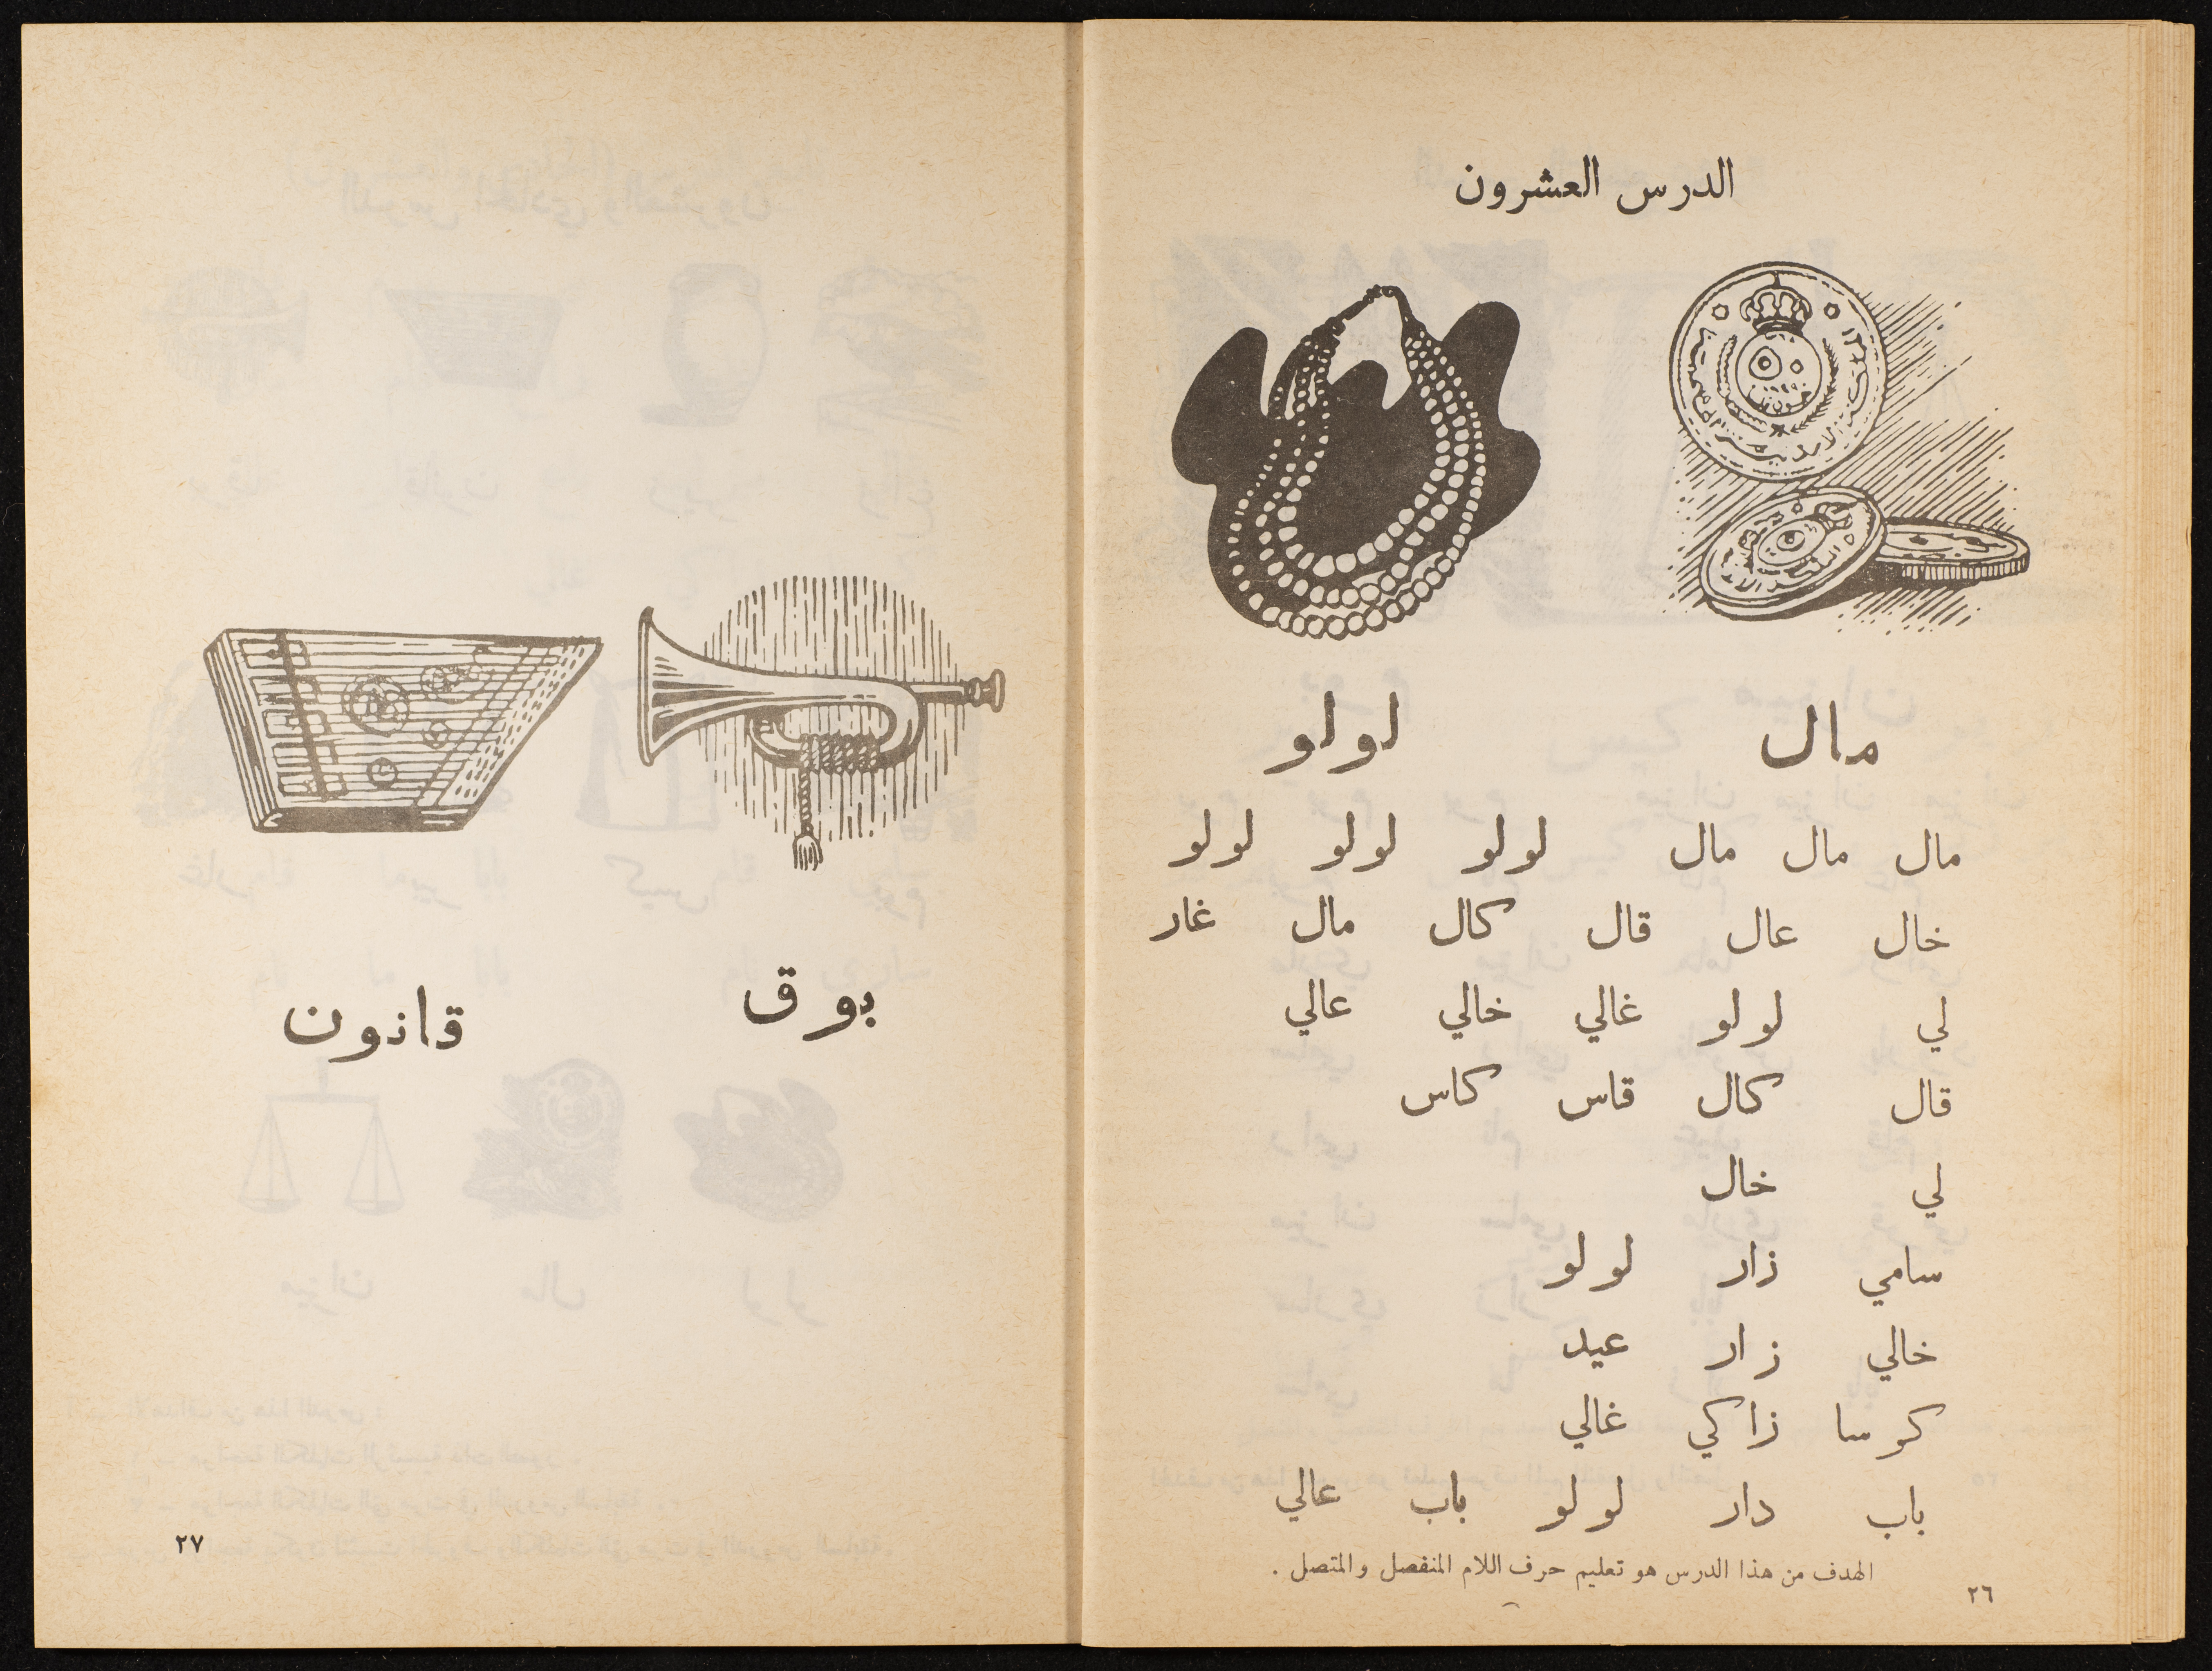 الدرس العشرون
مال لولو
مال مال مال لولو لولو لولو
خال عال قال كال مال غار
لي لولو غالي خالي عالي
قال كال قاس كاس
لي خال
سامي زار لولو
خالي زار عيد
كوسا زاكي غالي
باب دار لولو باب عالي
الهدف من هذا الدرس هو تعليم حرف اللام المنفصل والمتصل .
٢٦
بوق قانون
٢٧